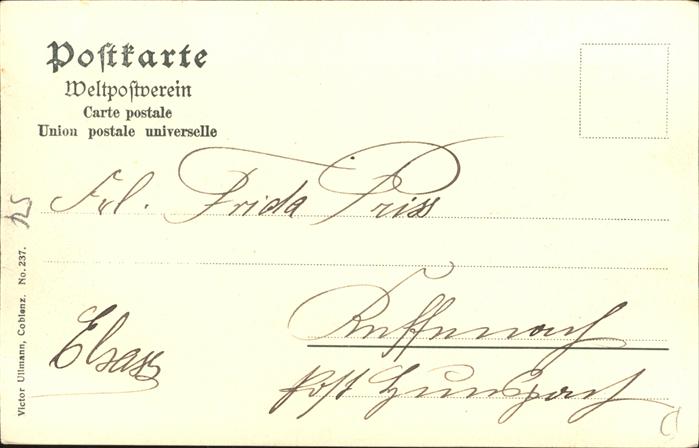 Postkarte
Weltpostverein
Carte postale
Union postale universelle
Frl. Frida Priss
Kuffenach
Elsass
Post Hunspach
Victor Ullmann, Coblenz. No. 237.